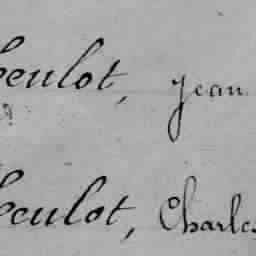 eulot, Jean
eulot, Charles